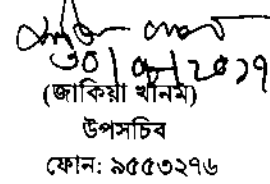 ৩০/০৮/২০১৭
(জাকিয়া খানম)
উপসচিব
ফোন: ৯৫৫৩২৭৬